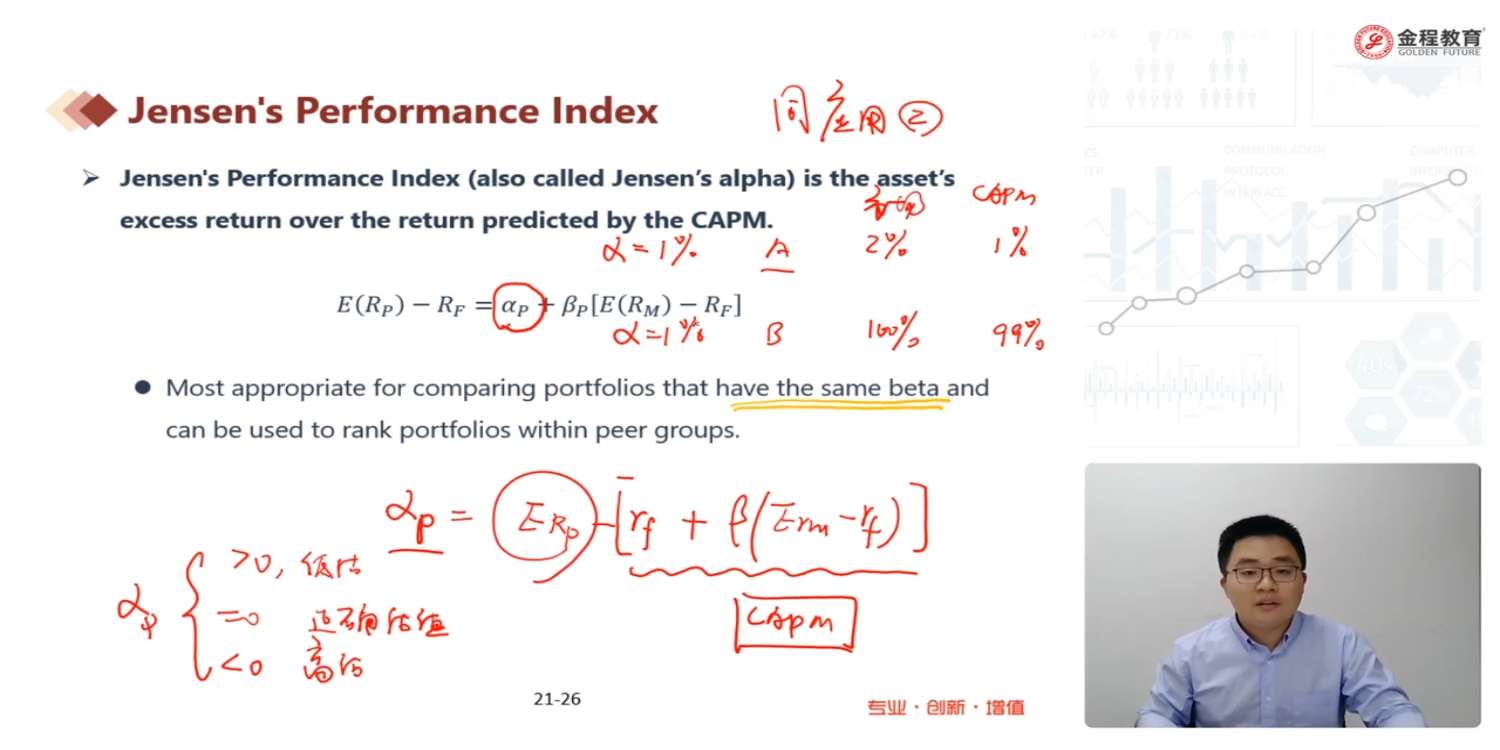 金程教育
GOLDEN FUTURE
Jensen's Performance Index
同应用②
Jensen's Performance Index (also called Jensen's alpha) is the asset's
excess return over the return predicted by the CAPM.
CAPM
α=1% A 2% 1%
E(R_P) − R_F = α_P + β_P[E(R_M) − R_F]
α=1% B 100% 99%
Most appropriate for comparing portfolios that have the same beta and
can be used to rank portfolios within peer groups.
α_p = E R_p − [r_f + β(E r_m − r_f)]
CAPM
α_p
>0, 低估
=0 正确估值
<0 高估
21-26
专业·创新·增值